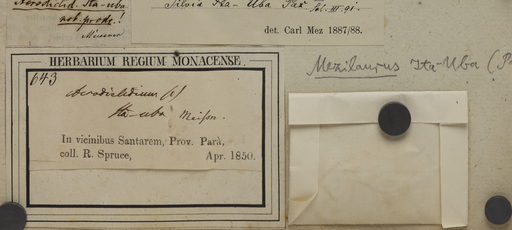 Acrodiclid. Ita-uba
not. prodr.!
Meissner
Silvia Ita-Uba Pax
det. Carl Mez 1887/88.
HERBARIUM REGIUM MONACENSE.
643
Acrodiclidium (?)
Ita-uba Meissn.
In vicinibus Santarem, Prov. Parà,
coll. R. Spruce, Apr. 1850.
Mezilaurus Ita-Uba (Pa